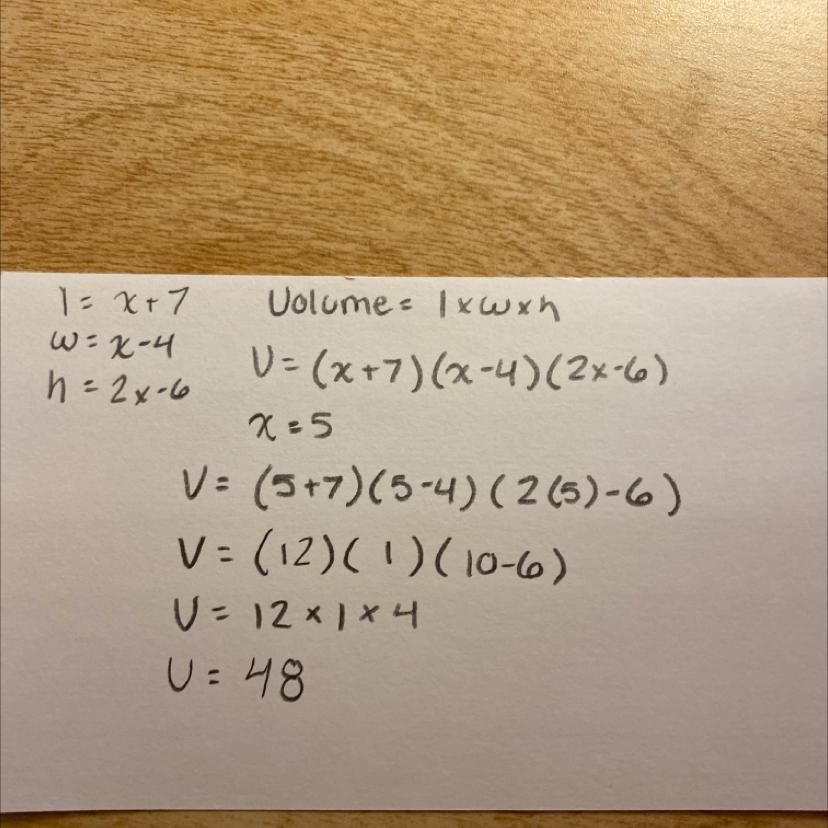 l = x + 7
w = x - 4
h = 2x - 6
Volume = l x w x h
V = (x + 7)(x - 4)(2x - 6)
x = 5
V = (5+7)(5-4)(2(5)-6)
V = (12)(1)(10-6)
V = 12 x 1 x 4
V = 48